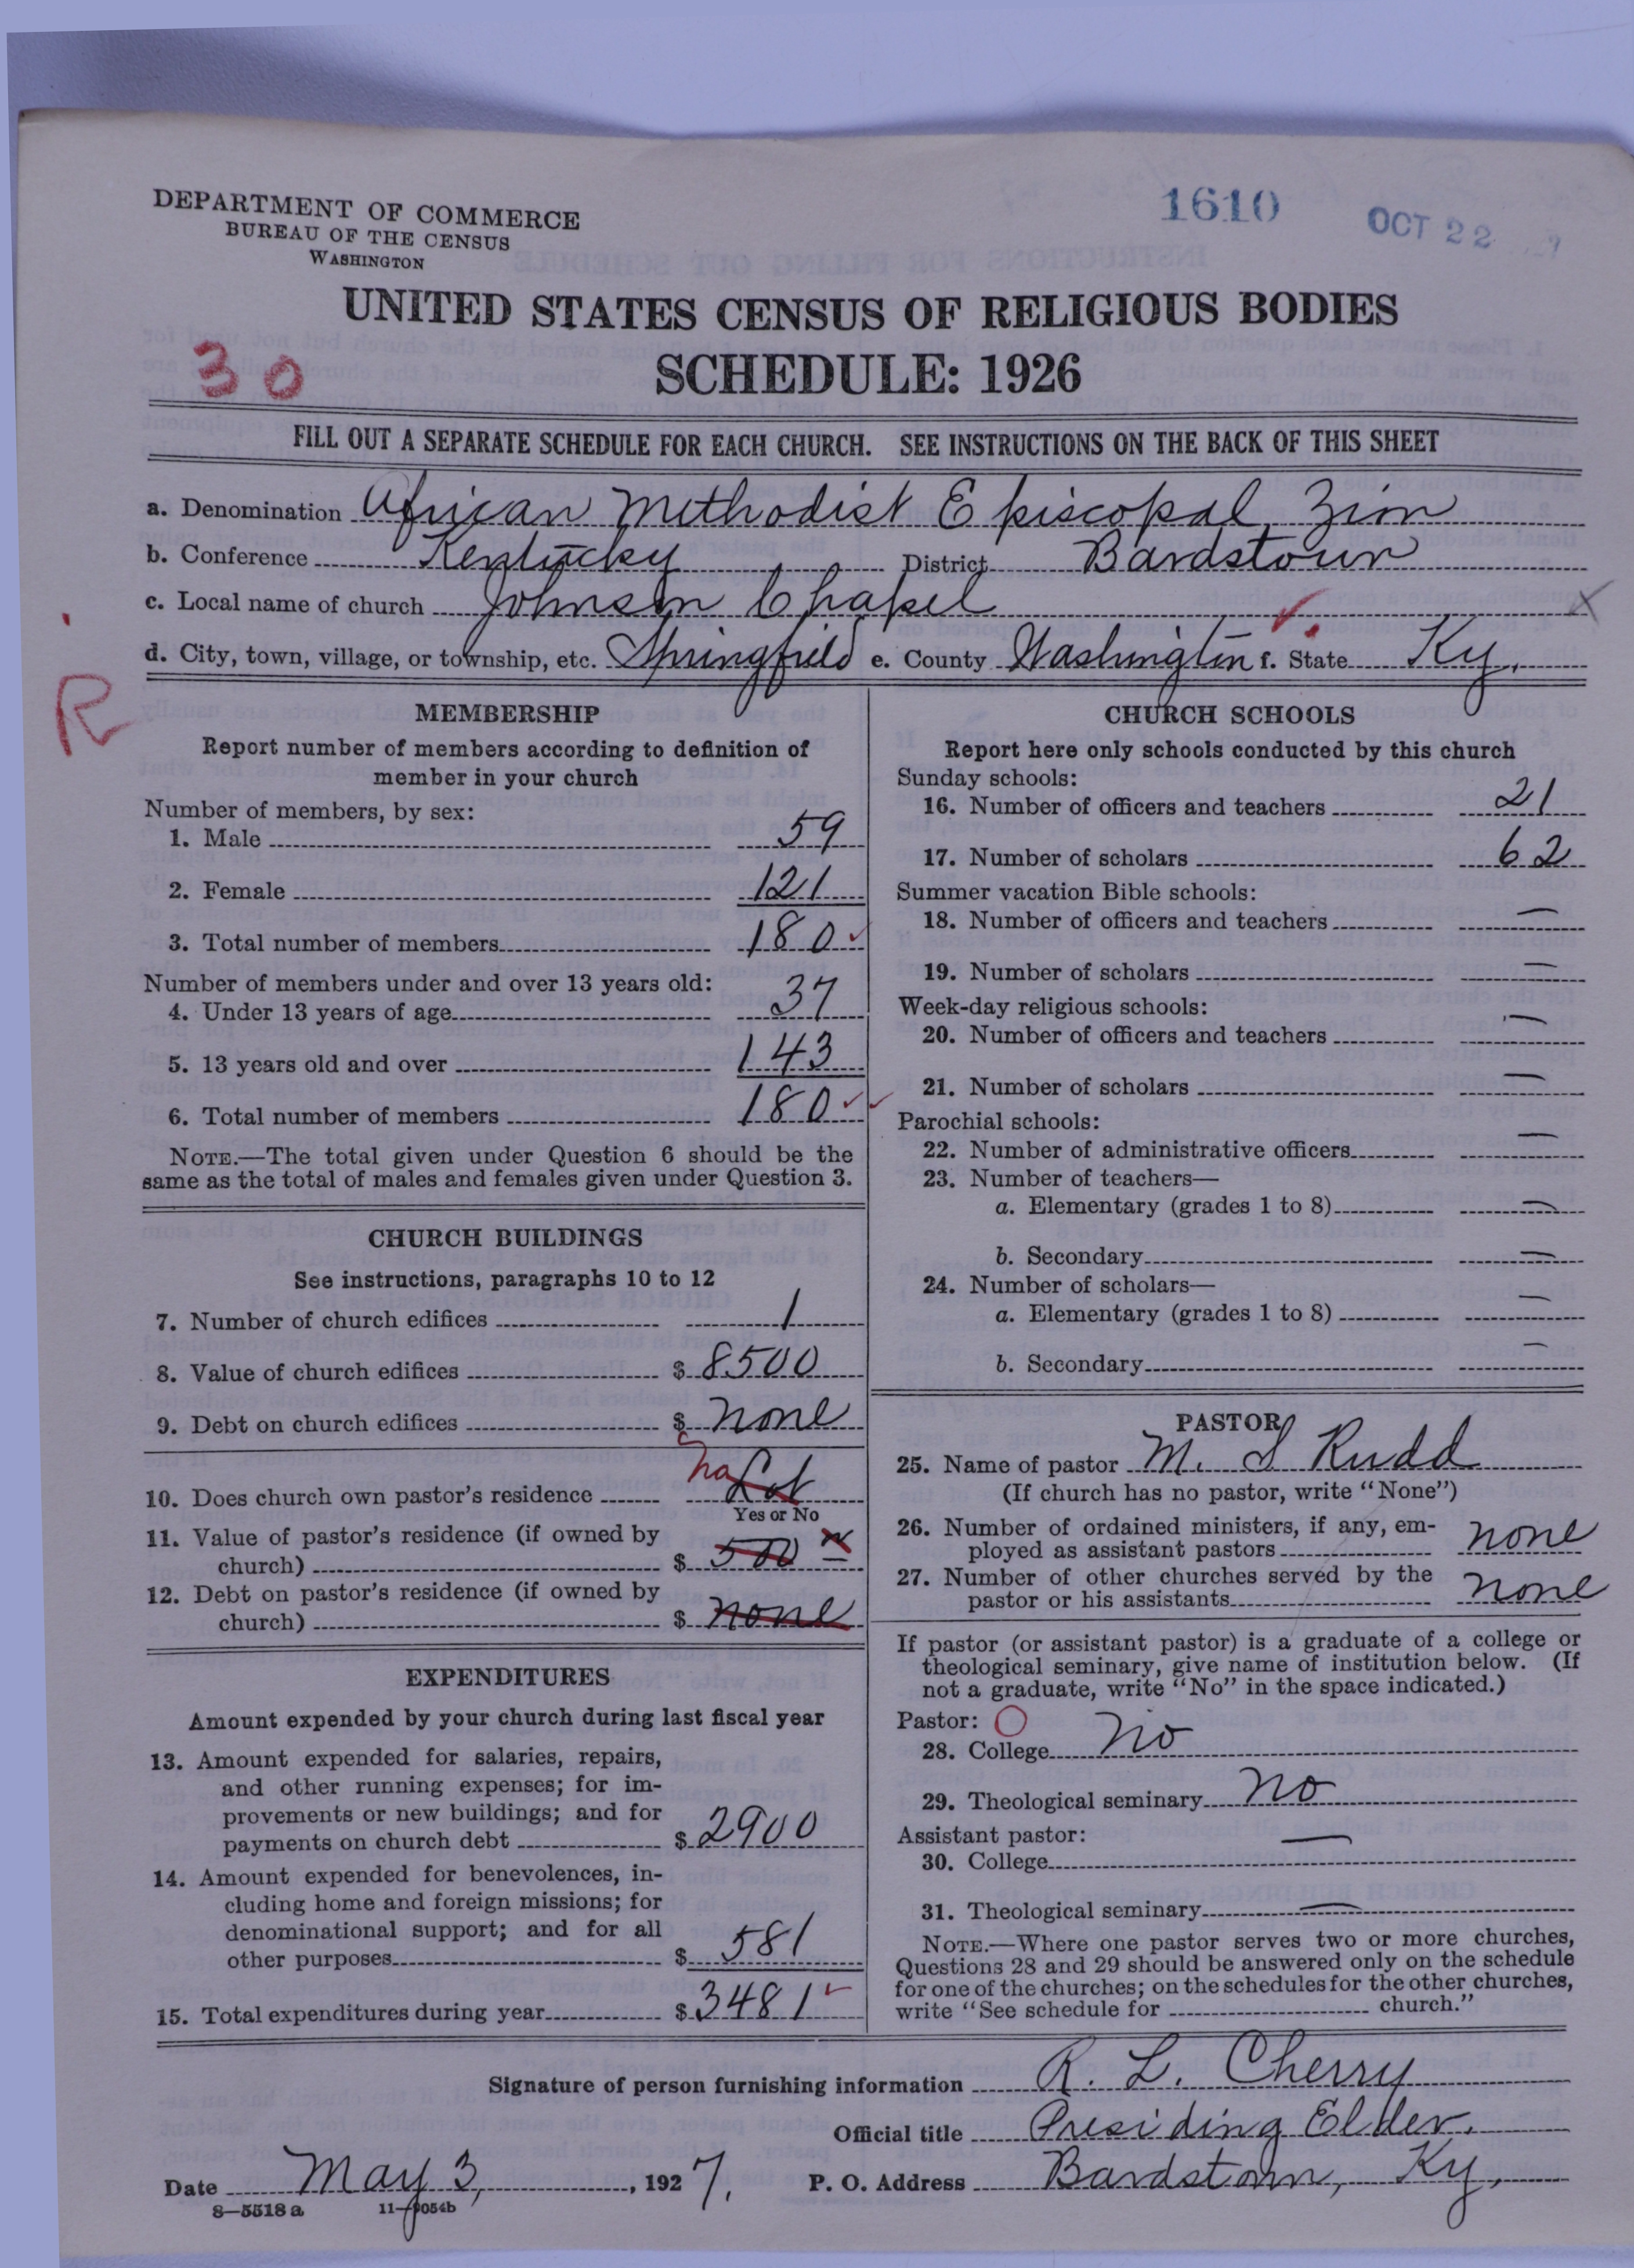 DEPARTMENT OF COMMERCE
BUREAU OF THE CENSUS
WASHINGTON
1610
OCT 22
UNITED STATES CENSUS OF RELIGIOUS BODIES
30
SCHEDULE: 1926
FILL OUT A SEPARATE SCHEDULE FOR EACH CHURCH. SEE INSTRUCTIONS ON THE BACK OF THIS SHEET
a. Denomination African Methodist Episcopal, Zion
b. Conference Kentucky District Bardstown
c. Local name of church Johnson Chapel
d. City, town, village, or township, etc. Springfield e. County Washington f. State Ky.
R
MEMBERSHIP
Report number of members according to definition of
member in your church
Number of members, by sex:
1. Male 59
2. Female 121
3. Total number of members 180
Number of members under and over 13 years old:
4. Under 13 years of age 37
5. 13 years old and over 143
6. Total number of members 180
NOTE.—The total given under Question 6 should be the
same as the total of males and females given under Question 3.
CHURCH BUILDINGS
See instructions, paragraphs 10 to 12
7. Number of church edifices 1
8. Value of church edifices $ 8500
9. Debt on church edifices $ none
10. Does church own pastor's residence no Lot
Yes or No
11. Value of pastor's residence (if owned by
church) $ 500
12. Debt on pastor's residence (if owned by
church) $ none
EXPENDITURES
Amount expended by your church during last fiscal year
13. Amount expended for salaries, repairs,
and other running expenses; for im-
provements or new buildings; and for
payments on church debt $ 2900
14. Amount expended for benevolences, in-
cluding home and foreign missions; for
denominational support; and for all
other purposes $ 581
15. Total expenditures during year $ 3481
CHURCH SCHOOLS
Report here only schools conducted by this church
Sunday schools:
16. Number of officers and teachers 21
17. Number of scholars 62
Summer vacation Bible schools:
18. Number of officers and teachers —
19. Number of scholars —
Week-day religious schools:
20. Number of officers and teachers —
21. Number of scholars —
Parochial schools:
22. Number of administrative officers —
23. Number of teachers—
a. Elementary (grades 1 to 8) —
b. Secondary —
24. Number of scholars—
a. Elementary (grades 1 to 8) —
b. Secondary —
PASTOR
25. Name of pastor M. S Rudd
(If church has no pastor, write "None")
26. Number of ordained ministers, if any, em-
ployed as assistant pastors none
27. Number of other churches served by the
pastor or his assistants none
If pastor (or assistant pastor) is a graduate of a college or
theological seminary, give name of institution below. (If
not a graduate, write "No" in the space indicated.)
Pastor:
28. College No
29. Theological seminary No
Assistant pastor:
30. College —
31. Theological seminary —
NOTE.—Where one pastor serves two or more churches,
Questions 28 and 29 should be answered only on the schedule
for one of the churches; on the schedules for the other churches,
write "See schedule for church."
Signature of person furnishing information R. L. Cherry
Official title Presiding Elder.
Date May 3, 1927. P. O. Address Bardstown, Ky.
8—5518 a 11—9054b